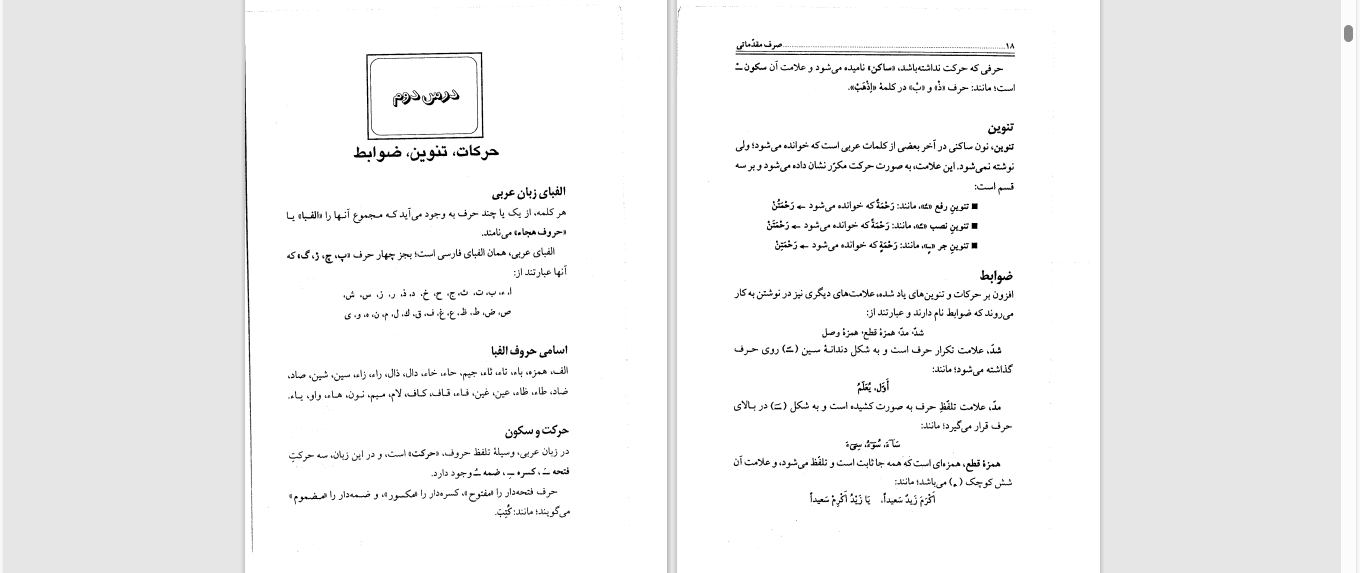 درس دوم
حرکات، تنوین، ضوابط
الفبای زبان عربی
هر کلمه، از یک یا چند حرف به وجود می‌آید که مجموع آنها را «الفبا» یا
«حروف هجاء» می‌نامند.
الفبای عربی، همان الفبای فارسی است؛ بجز چهار حرف «پ، چ، ژ، گ» که
آنها عبارتند از:
ا، ء، ب، ت، ث، ج، ح، خ، د، ذ، ر، ز، س، ش،
ص، ض، ط، ظ، ع، غ، ف، ق، ك، ل، م، ن، ه، و، ی
اسامی حروف الفبا
الف، همزه، باء، تاء، ثاء، جیم، حاء، خاء، دال، ذال، راء، زاء، سین، شین، صاد،
ضاد، طاء، ظاء، عین، غین، فاء، قاف، کاف، لام، میم، نون، هاء، واو، یاء.
حرکت و سکون
در زبان عربی، وسیلهٔ تلفظ حروف، «حرکت» است، و در این زبان، سه حرکتِ
فتحه ـَ ، کسره ـِ ، ضمه ـُ وجود دارد.
حرف فتحه‌دار را «مفتوح»، کسره‌دار را «مکسور»، و ضمه‌دار را «مضموم»
می‌گویند؛ مانند: کُتِبَ.
۱۸ صرف مقدّماتی
حرفی که حرکت نداشته‌باشد، «ساکن» نامیده می‌شود و علامت آن سکون ـْ
است؛ مانند: حرف «ذْ» و «بْ» در کلمهٔ «اِذْهَبْ».
تنوین
تنوین، نون ساکنی در آخر بعضی از کلمات عربی است که خوانده می‌شود؛ ولی
نوشته نمی‌شود. این علامت، به صورت حرکت مکرّر نشان داده می‌شود و بر سه
قسم است:
■ تنوینِ رفع «ـٌ»، مانند: رَحْمَةٌ که خوانده می‌شود ← رَحْمَتُنْ
■ تنوینِ نصب «ـً»، مانند: رَحْمَةً که خوانده می‌شود ← رَحْمَتَنْ
■ تنوینِ جر «ـٍ»، مانند: رَحْمَةٍ که خوانده می‌شود ← رَحْمَتِنْ
ضوابط
افزون بر حرکات و تنوین‌های یاد شده، علامت‌های دیگری نیز در نوشتن به کار
می‌روند که ضوابط نام دارند و عبارتند از:
شدّ، مدّ، همزهٔ قطع، همزهٔ وصل
شدّ، علامت تکرار حرف است و به شکل دندانهٔ سین (ـّ) روی حرف
گذاشته می‌شود؛ مانند:
أَوَّل، يُعَلِّمُ
مدّ، علامت تلفّظِ حرف به صورت کشیده است و به شکل (ـٓ) در بالای
حرف قرار می‌گیرد؛ مانند:
سَآءَ، سُوٓءَ، سِيٓءَ
همزهٔ قطع، همزه‌ای است که همه جا ثابت است و تلفّظ می‌شود، و علامت آن
شش کوچک (ء) می‌باشد؛ مانند:
أَکْرَمَ زَيدٌ سَعيداً، يَا زَيْدُ أَکْرِمْ سَعيداً